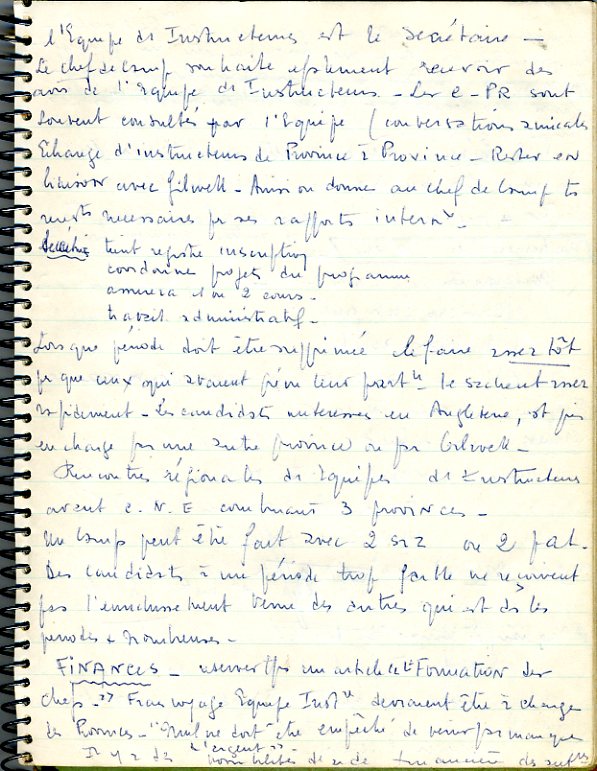 l'Equipe de Instructeurs est le Secrétaire -
Le chef de Camp souhaite également recevoir des
avis de l'Equipe de Instructeurs - Les C-PR sont
souvent consultés par l'Equipe (conversations amicales
Echange d'instructeurs de Province à Province - Rester en
liaison avec Gilwell - Ainsi on donne au chef de Camp ts
rensts nécessaires pr ses rapports intern
Secrétaire tient registre inscription
coordonne projets du programme
assurera 1 ou 2 cours -
travail administratif -
Lorsque période doit être supprimée le faire assez tôt
pr que ceux qui avaient prévu leur part le sachent assez
rapidement - Les candidats intéressés en Angleterre, st pris
en charge par une autre province ou par Gilwell -
Rencontres régionales de Equipes de Instructeurs
avant C.N.E combinant 3 provinces -
Un Camp peut être fait avec 2 siz ou 2 pat.
Des candidats à une période trop faible ne reçoivent
pas l'enrichissement venu des autres qui est ds les
périodes + nombreuses -
FINANCES - réserver tjs un article "Formation des
chefs" - Frais voyage Equipe Inst devraient être à charge
des Provinces - "Nul ne doit être empêché de venir par manque
d'argent" -
Il y a des possibilités de aide financière des